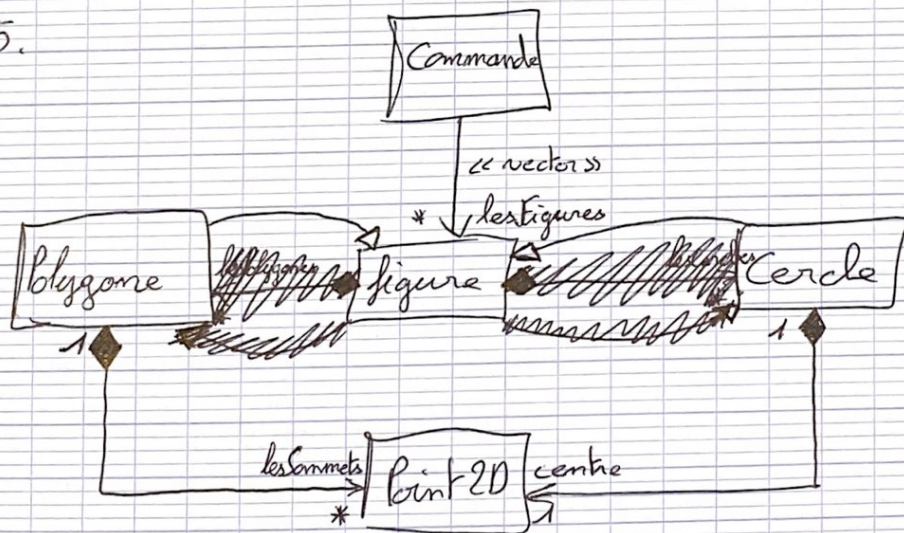 5.
Commande
<< vector >>
* lesFigures
Polygone
figure
Cercle
1
1
lesSommets
Point2D
centre
*
1